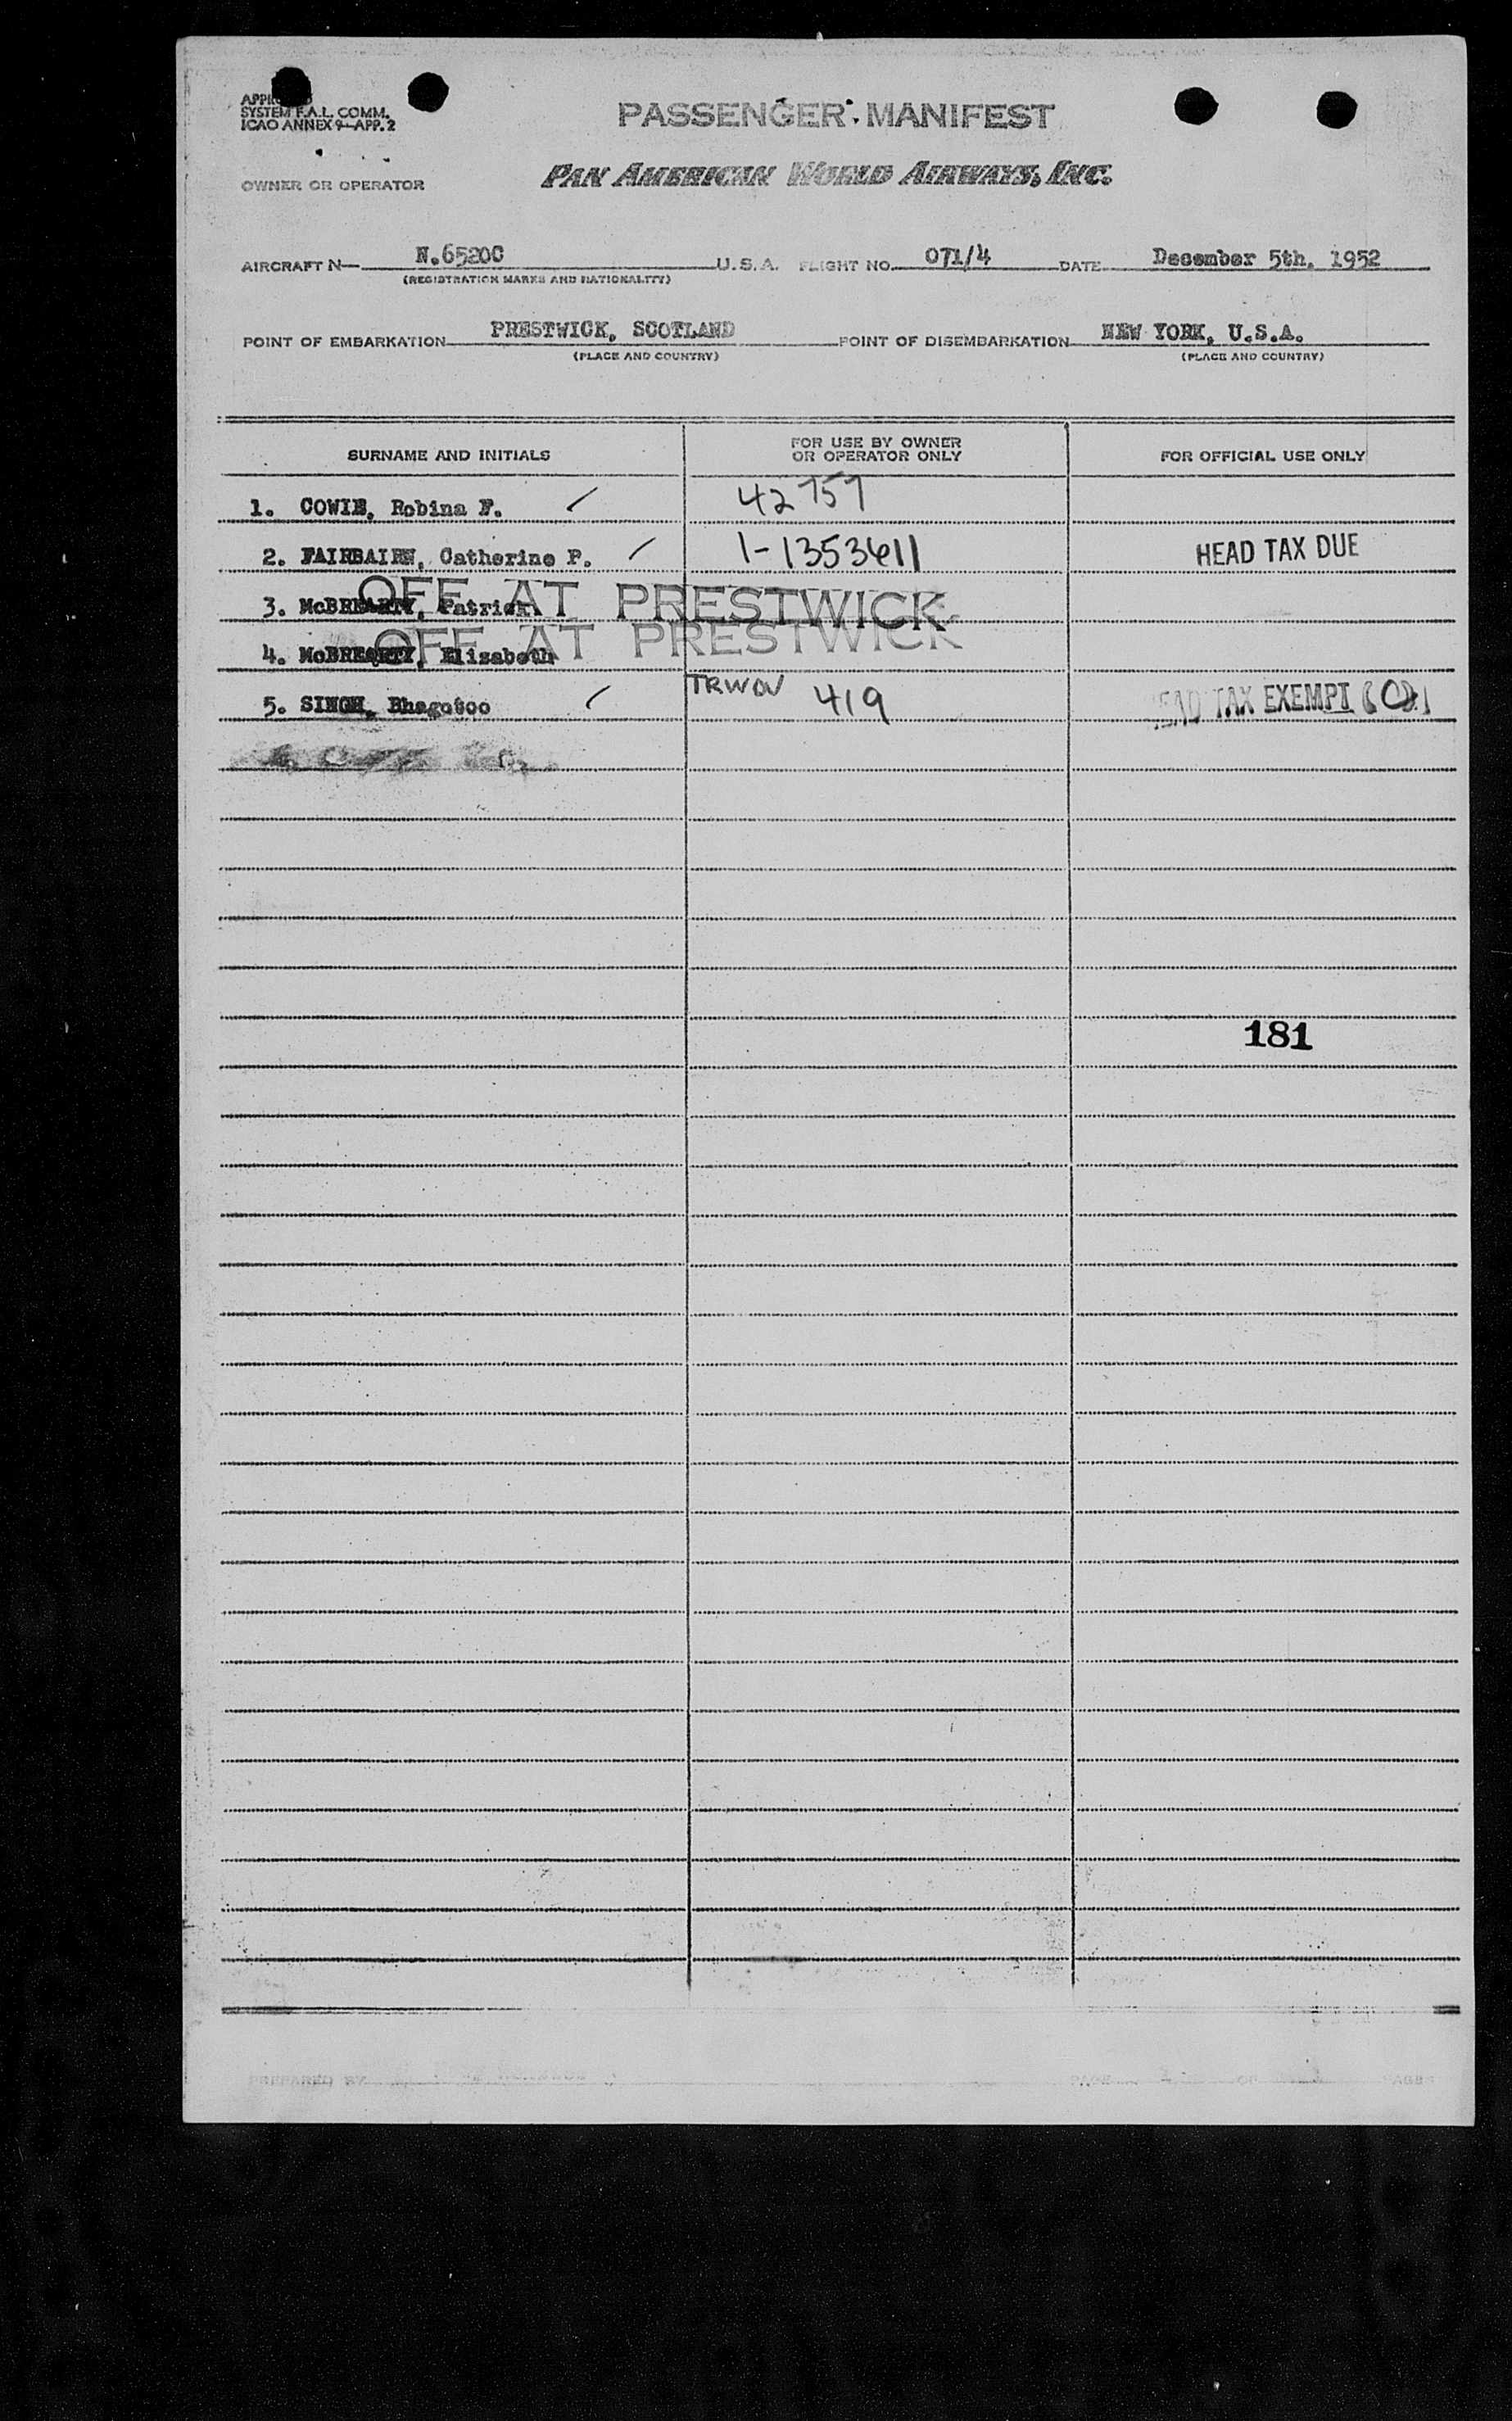 SYSTEM F.A.L. COMM.
ICAO ANNEX 9—APP. 2
PASSENGER MANIFEST
OWNER OR OPERATOR PAN AMERICAN WORLD AIRWAYS, INC.
AIRCRAFT N— N.6520C U.S.A. FLIGHT NO. 071/4 DATE December 5th, 1952
(REGISTRATION MARKS AND NATIONALITY)
POINT OF EMBARKATION PRESTWICK, SCOTLAND POINT OF DISEMBARKATION NEW YORK, U.S.A.
(PLACE AND COUNTRY) (PLACE AND COUNTRY)
SURNAME AND INITIALS FOR USE BY OWNER OR OPERATOR ONLY FOR OFFICIAL USE ONLY
1. COWIE, Robina F. 42757
2. FAIRBAIRN, Catherine P. 1-1353611 HEAD TAX DUE
OFF AT PRESTWICK
3. McBREARTY, Patrick
OFF AT PRESTWICK
4. McBREARTY, Elizabeth
5. SINGH, 419 TAX EXEMPT
181
PREPARED BY